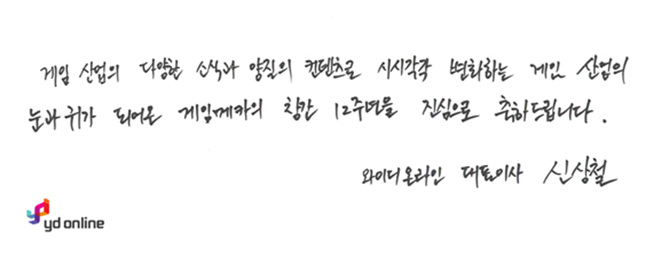 게임 산업의 다양한 소식과 양질의 컨텐츠로 시시각각 변화하는 게임 산업의
눈과 귀가 되어온 게임메카의 창간 12주년을 진심으로 축하드립니다.
와이디온라인 대표이사 신상철
yd online